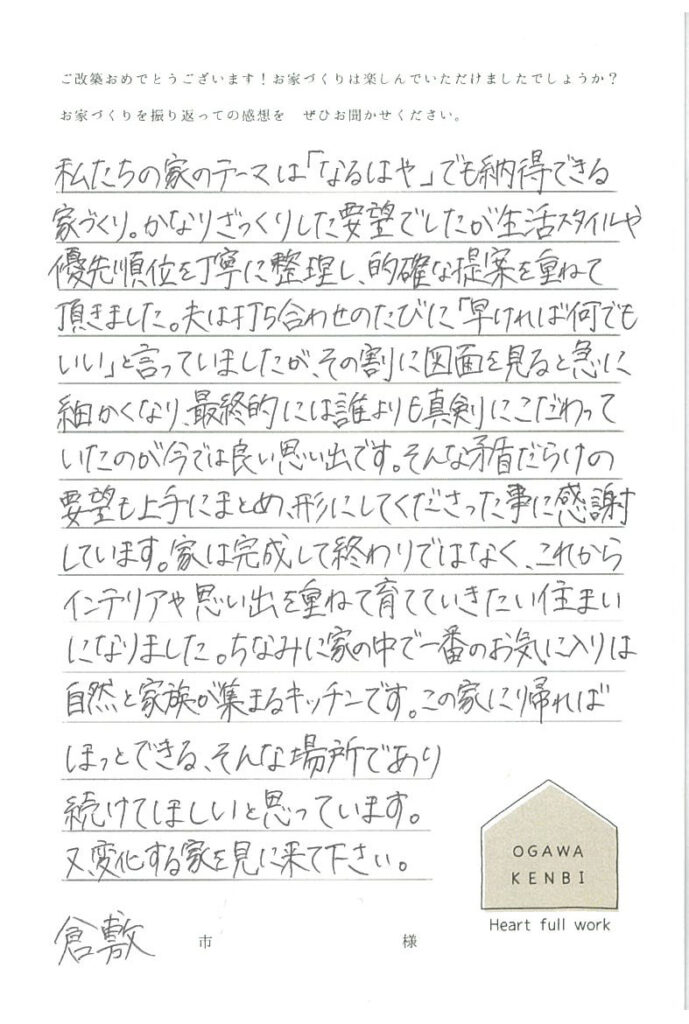 ご改築おめでとうございます！お家づくりは楽しんでいただけましたでしょうか？
お家づくりを振り返っての感想を　ぜひお聞かせください。
私たちの家のテーマは「なるはや」でも納得できる
家づくり。かなりざっくりした要望でしたが生活スタイルや
優先順位を丁寧に整理し、的確な提案を重ねて
頂きました。夫は打ち合わせのたびに「早ければ何でも
いい」と言っていましたが、その割に図面を見ると急に
細かくなり、最終的には誰よりも真剣にこだわって
いたのが今では良い思い出です。そんな矛盾だらけの
要望も上手にまとめ、形にしてくださった事に感謝
しています。家は完成して終わりではなく、これから
インテリアや思い出を重ねて育てていきたい住まい
になりました。ちなみに家の中で一番のお気に入りは
自然と家族が集まるキッチンです。この家に帰れば
ほっとできる、そんな場所であり
続けてほしいと思っています。
又、変化する家を見に来て下さい。
OGAWA
KENBI
Heart full work
倉敷 市 様